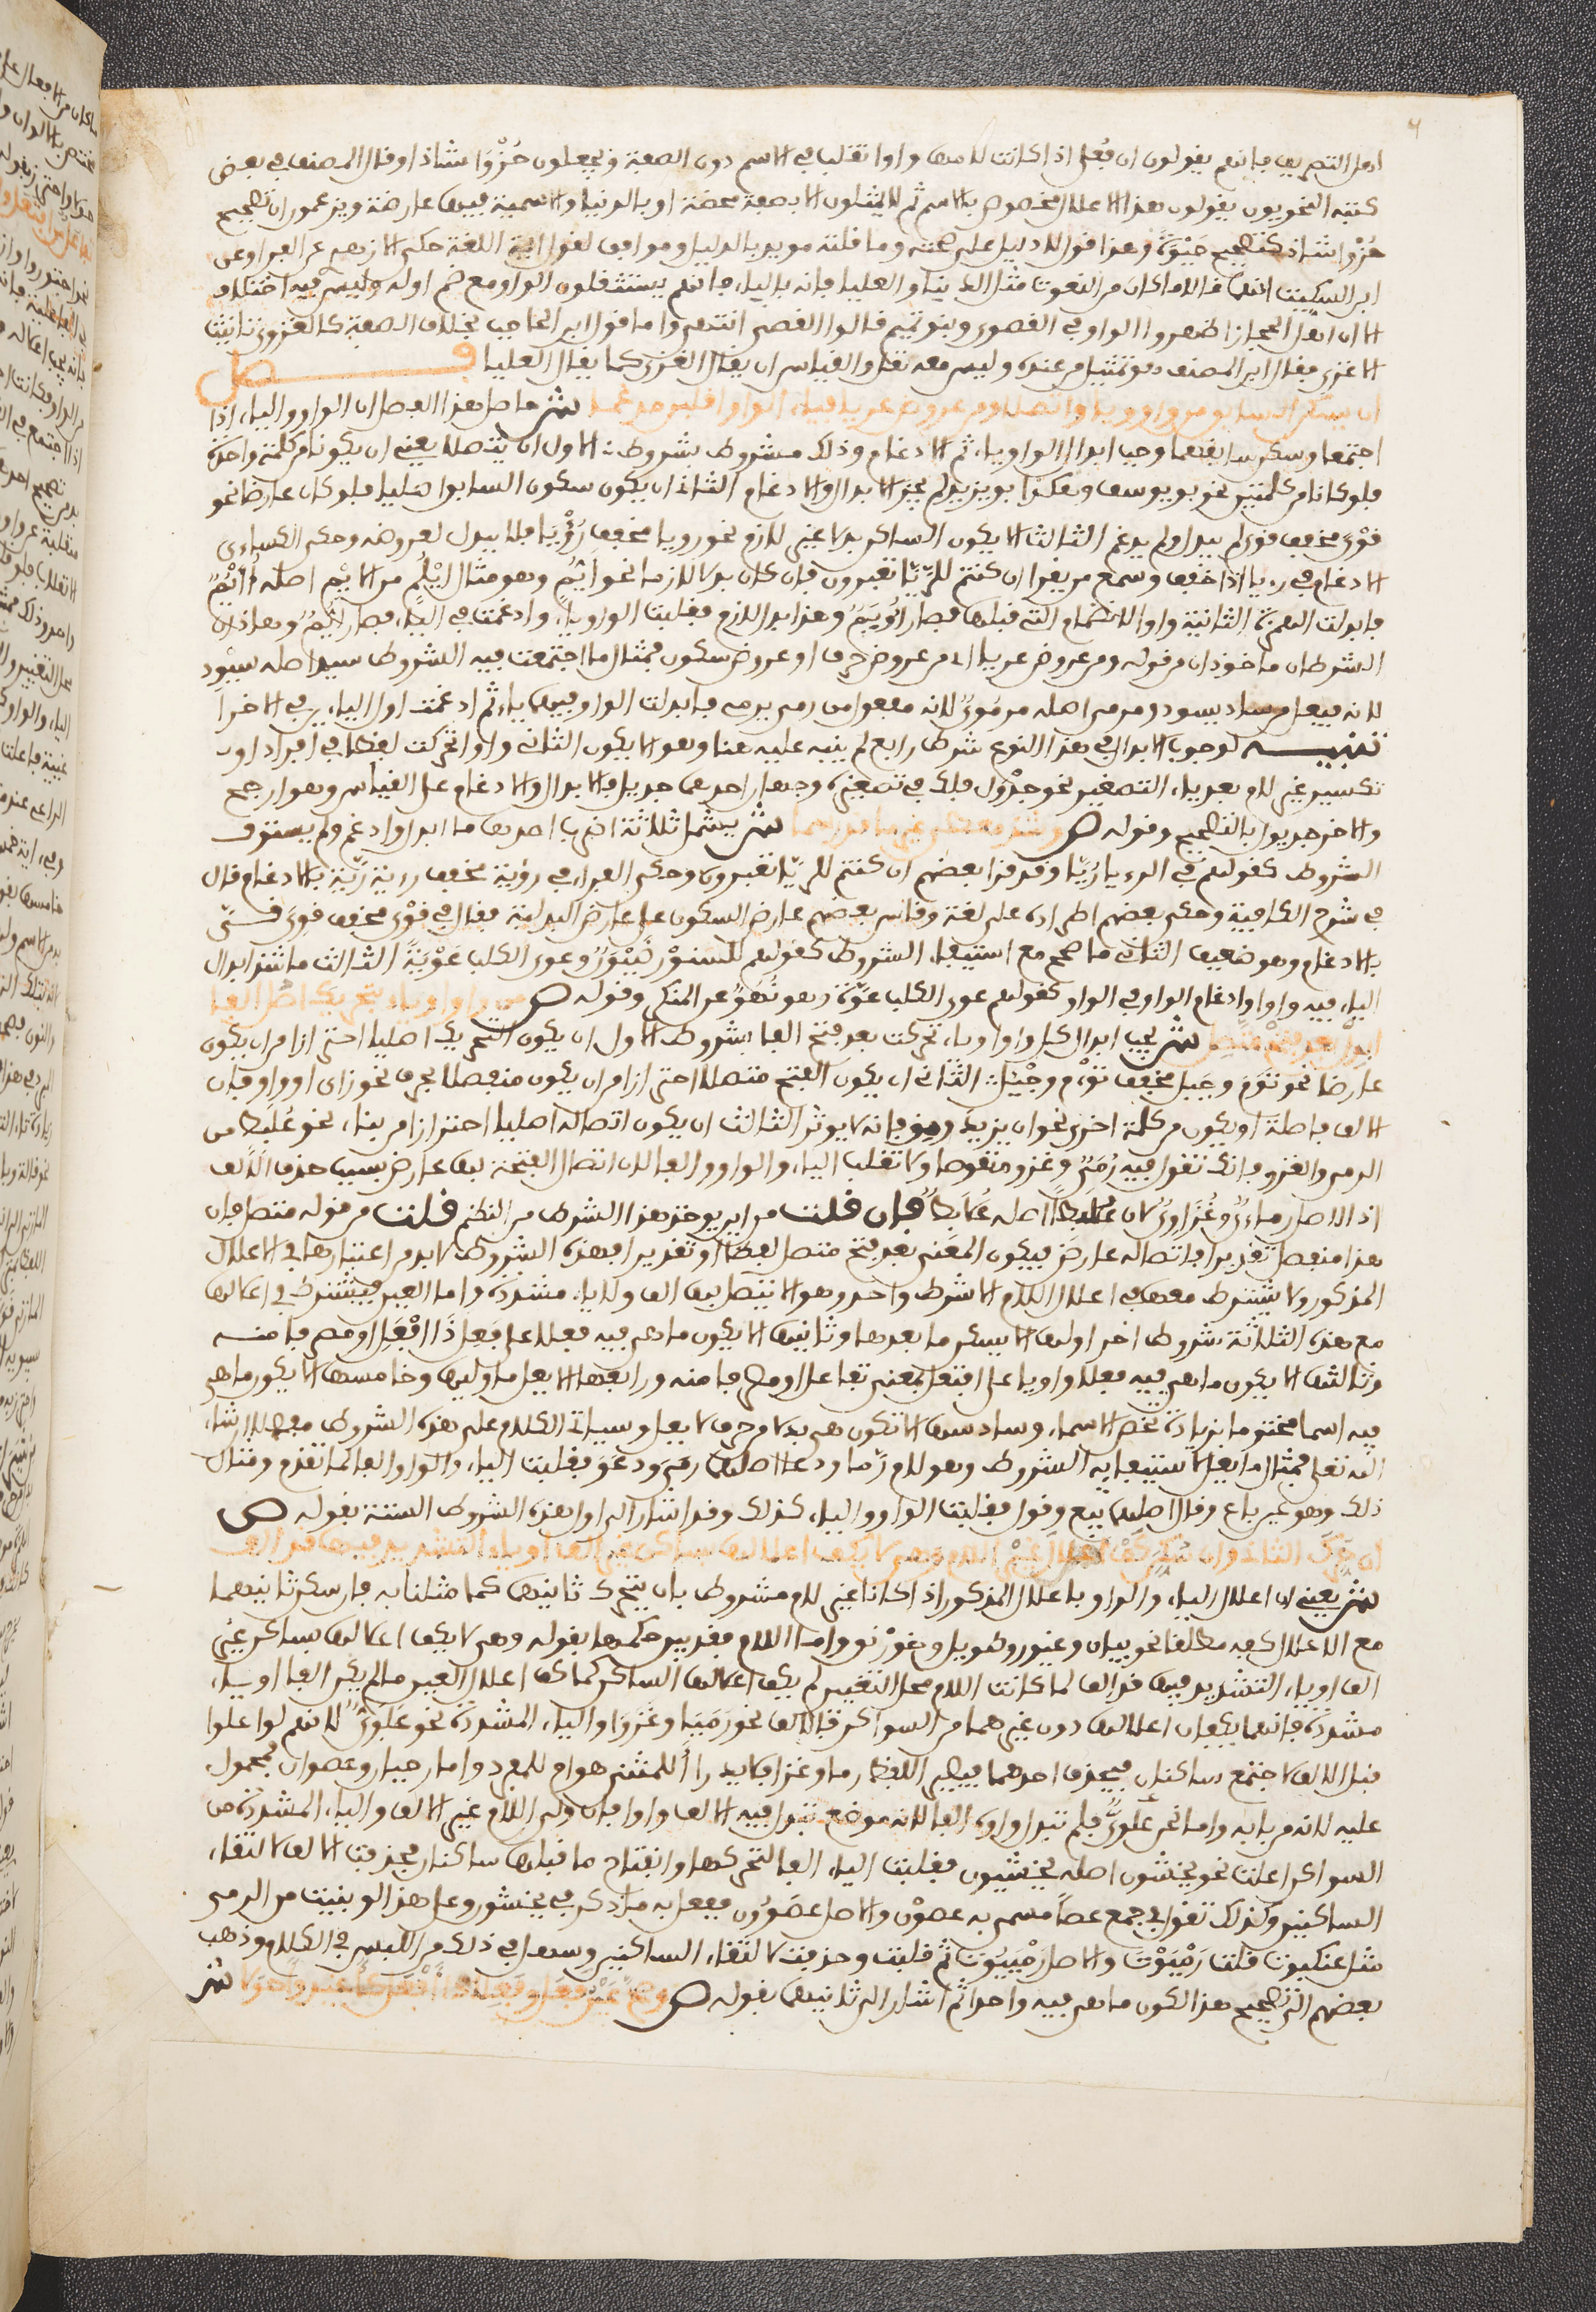 اهل التصريف فانهم يقولون ان فُعلى اذا كانت لامها واوا تقلب في الاسم دون الصفة ويجعلون حُزْوَا شاذا وقال المصنف في بعض
كتبه النحويون يقولون هذا الاعلال مخصوص بالاسم ثم لا يمثلون الا بصفة محضة او بالدنيا والاسمية فيها عارضة ويزعمون ان تصحيح
حُزْوا شاذ كتصحيح حَيْوة وهذا قول لا دليل على صحته وما قلته مويد بالدليل وموافق لقول ايمة اللغة حكى الازهري عن الفراء وعن
ابن السكيت انهما قالا ما كان من النعوت مثل الدنيا والعليا فانه بالياء فانهم يستثقلون الواو مع ضم اوله وليس فيه اختلاف
الا ان اهل الحجاز اظهروا الواو في القصوى وبنو تميم قالوا القصيى انتهى واما قول ابن الحاجب بخلاف الصفة كالغزوى تانيث
الاغزى فقال ابن المصنف هو تمثيل من عنده وليس معه نقل والقياس ان يقال الغزيى كما يقال العليا فصل
ان يسكن السابق من واو ويا واتصلا ومن عروض عريا فياء الواو اقلبن مدغما ش حاصل هذا الفصل ان الواو والياء اذا
اجتمعا وسكن سابقهما وجب ابدال الواو ياء ثم الادغام وذلك مشروط بشروط الاول ان يتصلا يعني ان يكونا من كلمة واحدة
فلو كانا من كلمتين نحو بو يوسف وهكذا بو يزيد لم يجز الابدال والادغام الثاني ان يكون سكون السابق اصليا فلو كان عارضا نحو
قَوْيَ مخفف قوي لم يبدل ولم يدغم الثالث الا يكون الساكن بدلا غير لازم نحو رويا مخفف رُؤْيَا فلا يبدل لعروضه وحكى الكساءى
الادغام في رءيا اذا خفف وسمع من يقرا ان كنتم للرُيَّا تعبرون فان كان بدلا لازما نحو ايُّم وهو مثال ابْلُم من الايْم اصله اؤْيُم
فابدلت الهمزة الثانية واوا لانضمام التي قبلها فصار اوْيُم وهذا بدل لازم فقلبت الواو ياء وادغمت في الياء فصار ايُّم وهاذان
الشرطان ماخوذان من قوله ومن عروض عريا اى من عروض حرف او عروض سكون فمثال ما اجتمعت فيه الشروط سيد اصله سيْوِد
لانه فيعل من ساد يسود ومرمي اصله مرمُويٌ لانه مفعول من رمى يرمى فابدلت الواو فيهما ياء ثم ادغمت اول الياءين في الاخرا
تنبيه لوجوب الابدال في هذا النوع شرط رابع لم ينبه عليه هنا وهو الا يكون الثاني واوا تحركت لفظا في افراد او
تكسير غير لام بعد ياء التصغير نحو جدْوَل فلك في تصغيره وجهان احدهما جديل بالابدال والادغام على القياس وهو ارجح
والاخر جديول بالتصحيح وقوله ص وشذ معطى غير ما قد رسما ش يشمل ثلاثة اضرب احدها ما ابدل وادغم ولم يستوف
الشروط كقولهم في الرءيا رُيَّا وقد قرا بعضهم ان كنتم للريّا تعبرون وحكى الفراء في رؤية مخفف رءية رُيّة بالادغام قال
في شرح الكافية وحكى بعضهم اطراده على لغة وقاس بعضهم عارض السكون على عارض البدلية فقال في قَوْيَ مخفف قوي قَيَّ
بالادغام وهو ضعيف الثاني ما صحح مع استيفاء الشروط كقولهم للسنوْر ضَيْوَنٌ وعوى الكلب عَوْيَة الثالث ما شذ ابدال
الياء فيه واوا وادغام الواو في الواو كقولهم عوى الكلب عوّة وهو نُهَوّ عن المنكر وقوله ص من واو او ياء بتحريك اصل الفا
ابدل بعد فتح متصل ش يجب ابدال كل واو او ياء تحركت بعد فتح الفا بشروط الاول ان يكون التحريك اصليا احترازا من ان يكون
عارضا نحو تَوَم وجَيَل مخفف توْءَم وجْيئَل الثاني ان يكون الفتح متصلا احترازا من ان يكون منفصلا بحرف نحو زاى او واو فان
الالف فاصلة او يكون من كلمة اخرى نحو ان يزيد ومق فانه لا يوثر الثالث ان يكون اتصاله اصليا احترازا من بناء نحو عُلَبِط من
الرمي والغزو فانك تقول فيه رُمَيٍ وغُزَوٍ منقوصا ولا تقلب الياء والواو الفا لان اتصال الفتحة بهما عارض بسبب حذف الالف
اذ الاصل رماىِيٌ وغُزَاوِوٌ لان عُلَبِطًا اصله عُلابِطٌ فان قلت من اين يوخذ هذا الشرط من النظم قلت من قوله متصل فان
هذا منفصل تقديرا فاتصاله عارض فيكون المعنى بعد فتح متصل لفظا او تقديرا فهذه الشروط لا بد من اعتبارها في الاعلال
المذكور ولا يشترط معها في اعلال اللام الا شرط واحد وهو الا يتصل بها الف ولا ياء مشددة واما العين فيشترط في اعلالها
مع هذه الثلاثة شروط اخر اولها الا يسكن ما بعدها وثانيها الا يكون ما هى فيه فعلا على فَعِل ذا افْعَل او مصرفا منه
وثالثها الا يكون ما هى فيه فعلا واويا على افتعل بمعنى تفاعل او مصرفا منه ورابعها الا يعل ما وليها وخامسها الا يكون ما هى
فيه اسما مختوما بزيادة تخص الاسماء وسادسها الا تكون هى بدلا من حرف لا يعل وسياتي الكلام على هذه الشروط مفصلا ان شاء
الله تعلى فمثال ما يعل لاستيفايه الشروط وهو لام رَمَا ودعا اصلهما رمَيَ ودعَوَ فقلبت الياء والواو الفا لما تقدم ومثال
ذلك وهو عين باع وقال اصلهما بيَع وقول فقلبت الواو والياء كذلك وقد اشار الى اول هذه الشروط الستة بقوله ص
ان حُرّك الثاني وان سُكِّن كَفْ اعلالَ غيرِ اللام وهي لا يُكَف اعلالها بساكن غير الف او ياء التشديد فيها قد الف
ش يعني ان اعلال الياء والواو بالاعلال المذكور اذا كانا غير لام مشروط بان يتحرك ثانيهما كما مثلنا به فان سكن ثانيهما
منع الاعلال كفه مطلقا نحو بيان وغيور وطويل وخوَرْنق واما اللام فقد بين حكمها بقوله وهي لا يكف اعلالها بساكن غير
الف او ياء التشديد فيها قد الف لما كانت اللام محل التغيير لم يكف اعلالها الساكن كما كف اعلال العين ما لم يكن الفا او ياء
مشددة فانهما يكفان اعلالها دون غيرهما من السواكن فالالف نحو رَمَيَا وغَزَوَا والياء المشددة نحو عَلَوِيٌّ لانهم لو اعلوا
قبل الالف لاجتمع ساكنان فيحذف احدهما فيصير اللفظ رما وغزا فلا يدرا للمثنى هو ام للمفرد واما رحيان وعصوان فمحمول
عليه لانه من بابه واما نحو عَلَوِيّ فلم تبدل واوه الفا لانه موضع تبدل فيه الالف واوا فان ولى اللام غير الالف والياء المشددة من
السواكن اعلت نحو يخشون اصله يخشَيُون فقلبت الياء الفا لتحركها وانفتاح ما قبلها ساكنان فحذفت الالف لالتقاء
الساكنين وكذلك تقول في جمع عصًا مسمى به عصوْن والاصل عصَوُون ففعل به ما ذكر في يخشون وعلى هذا لو بنيت من الرمي
مثل عنكبوت قلت رَمْيَوْت والاصل رَمْيَيُوت ثم قلبت وحذفت لالتقاء الساكنين وسهل في ذلك من اللبس في الكلام وذهب
بعضهم الى تصحيح هذا لكون ما هى فيه واحدا ثم اشار الى ثانيها بقوله ص وصح عينُ فعَل وفعِلا ذا افْعَل كاغيد واحولا ش